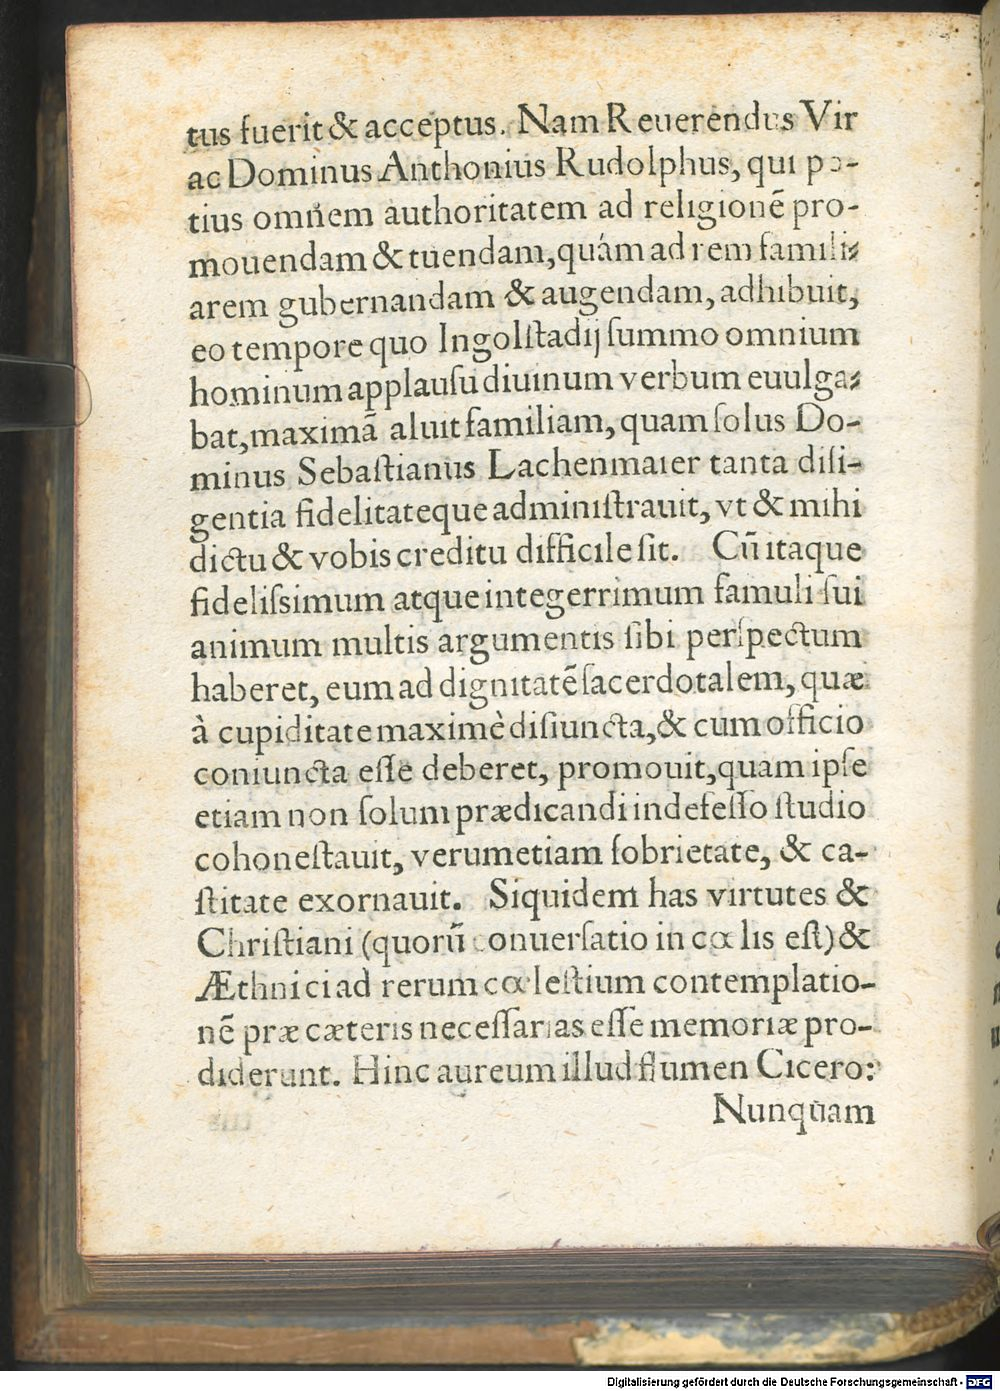 tus fuerit & acceptus. Nam Reuerendus Vir
ac Dominus Anthonius Rudolphus, qui po-
tius omnem authoritatem ad religionẽ pro-
mouendam & tuendam, quám ad rem famili⸗
arem gubernandam & augendam, adhibuit,
eo tempore quo Ingolſtadij ſummo omnium
hominum applauſu diuinum verbum euulga⸗
bat, maximã aluit familiam, quam ſolus Do-
minus Sebaſtianus Lachenmaier tanta dili-
gentia fidelitateque adminiſtrauit, vt & mihi
dictu & vobis creditu difficile ſit. Cũ itaque
fideliſsimum atque integerrimum famuli ſui
animum multis argumentis ſibi perſpectum
haberet, eum ad dignitatẽ ſacerdotalem, quæ
à cupiditate maximè diſiuncta, & cum officio
coniuncta eſſe deberet, promouit, quam ipſe
etiam non ſolum prædicandi indefeſſo ſtudio
cohoneſtauit, verumetiam ſobrietate, & ca-
ſtitate exornauit. Siquidem has virtutes &
Chriſtiani (quorũ conuerſatio in cœlis eſt) &
Æthnici ad rerum cœleſtium contemplatio-
nẽ præ cæteris neceſſarias eſſe memoriæ pro-
diderunt. Hinc aureum illud flumen Cicero:
Nunquam
Digitalisierung gefördert durch die Deutsche Forschungsgemeinschaft - DFG